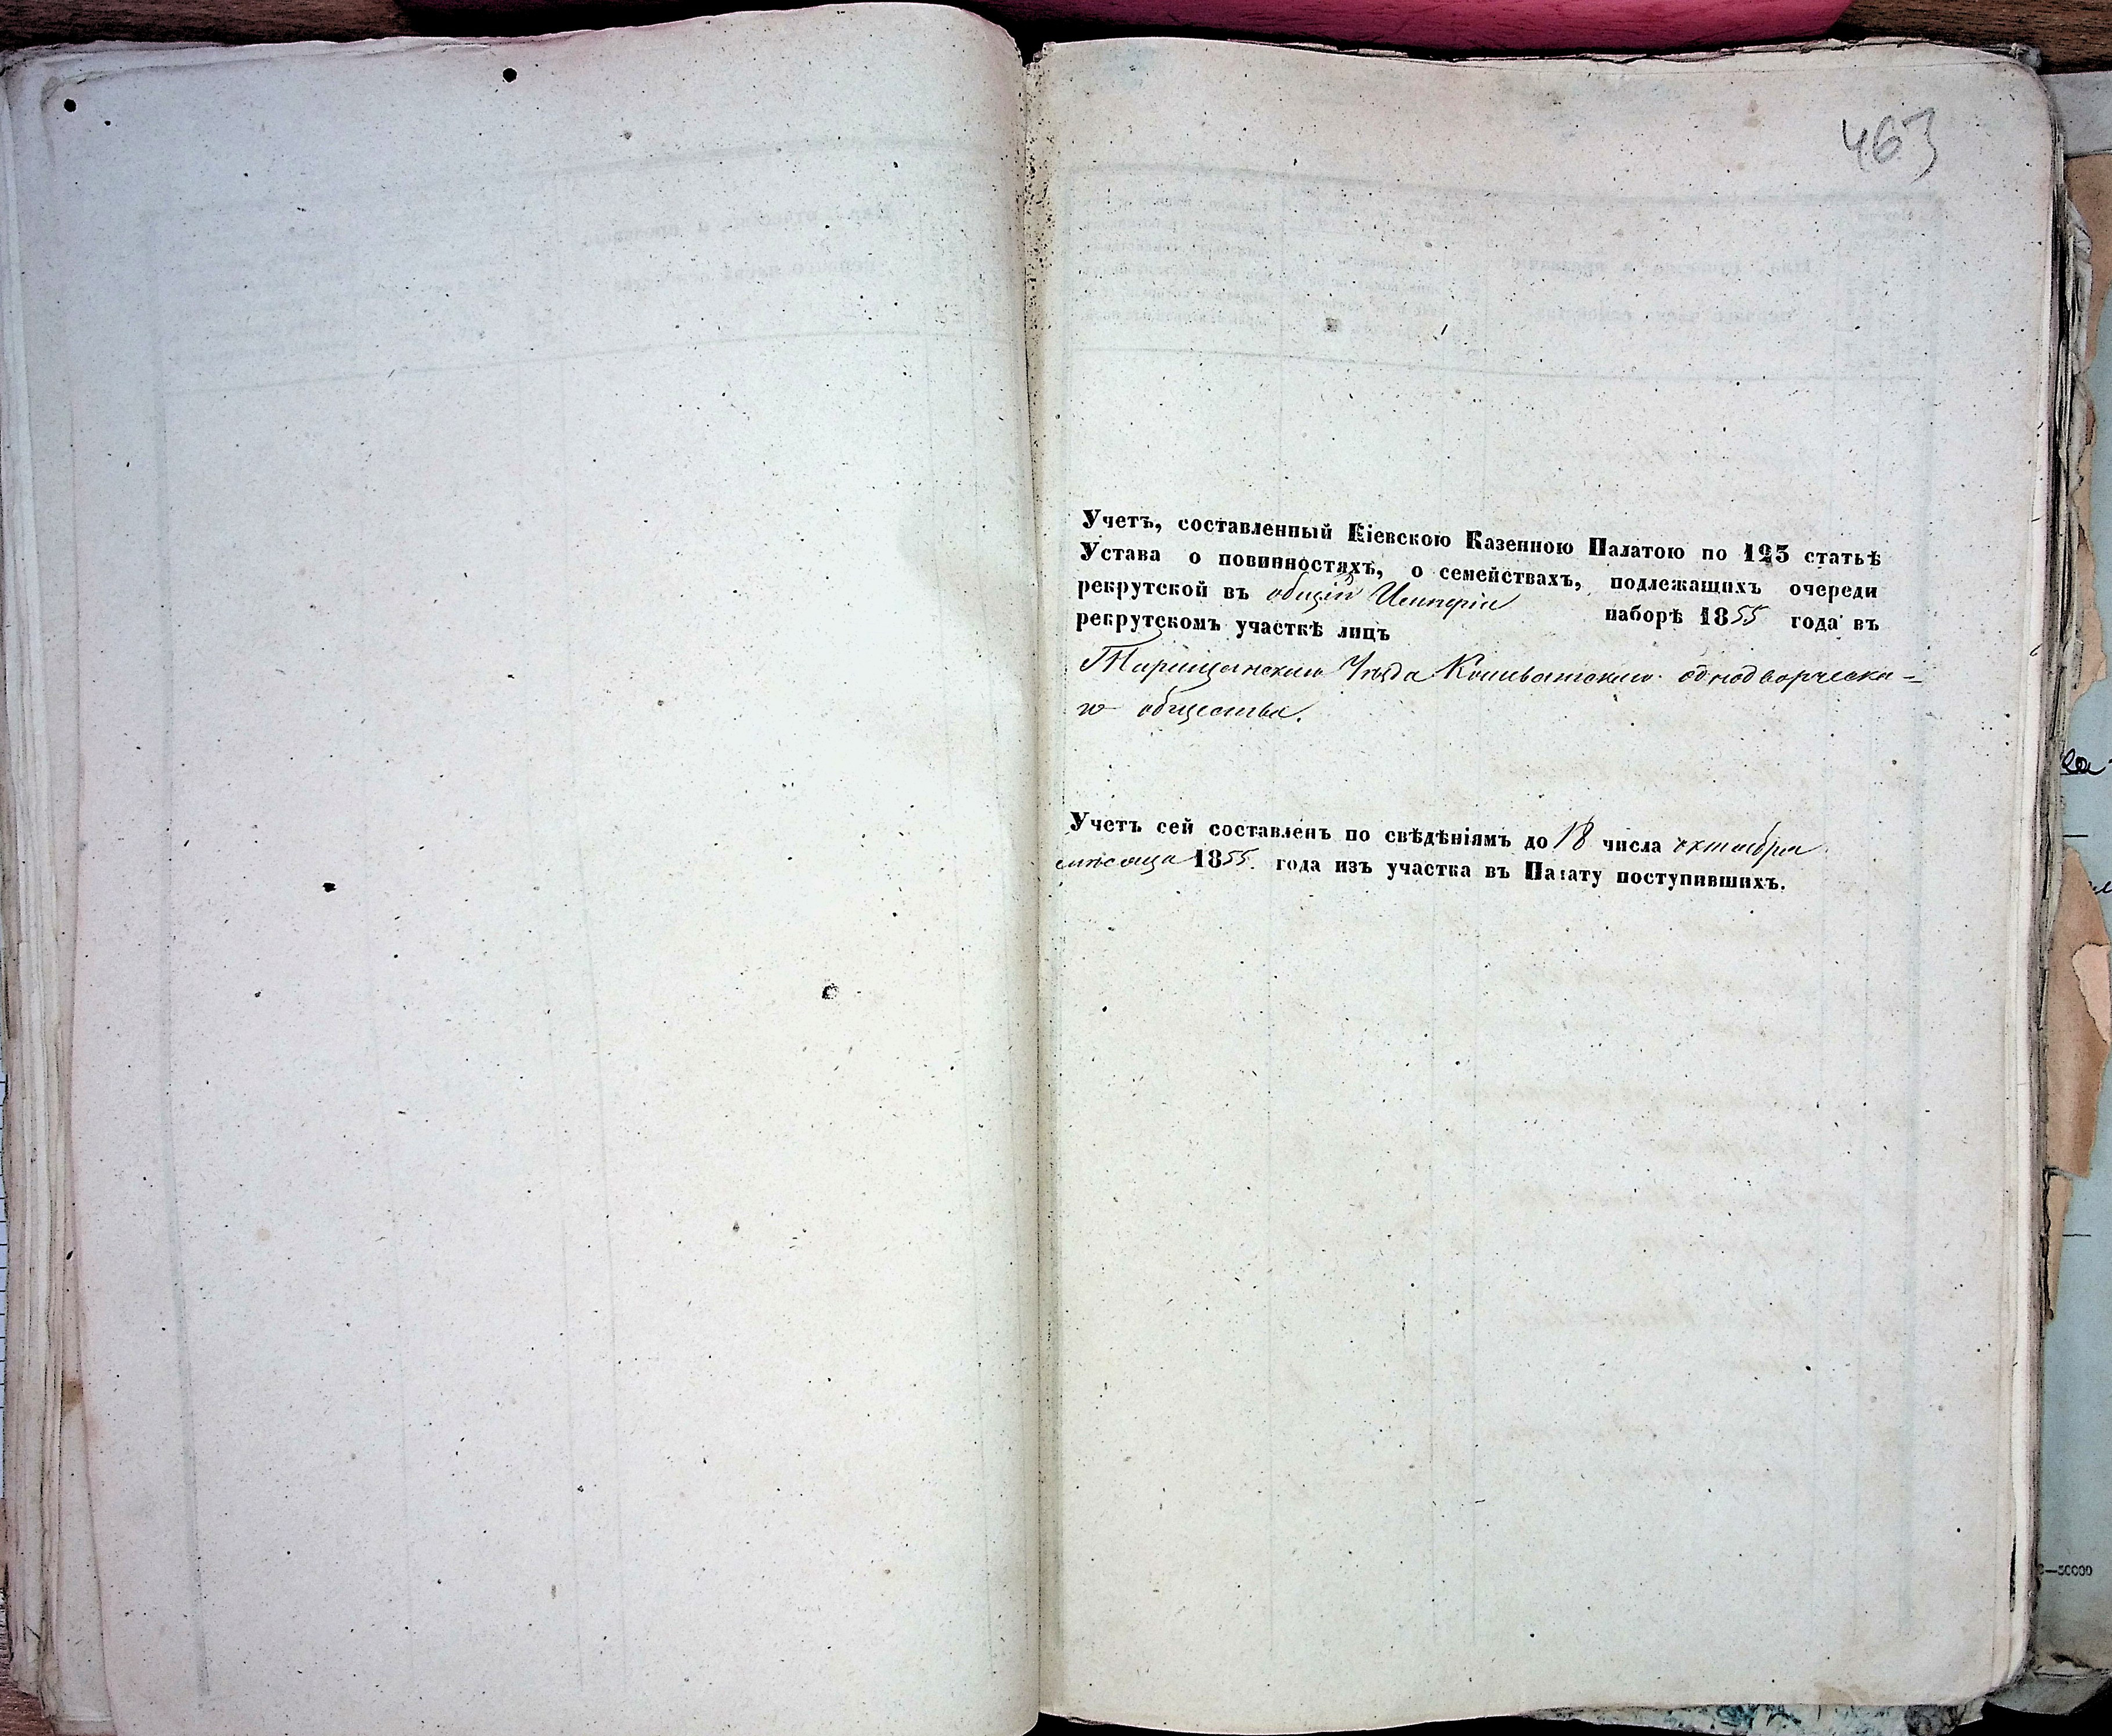 463
Учетъ, составленный Кіевскою Казенною Палатою по 123 статьѣ
Устава о повинностяхъ, о семействахъ, подлежащихъ очереди
рекрутской въ общій Имперіи наборѣ 1855 года въ
рекрутскомъ участкѣ лицъ
Таращанскаго Уѣзда Кошеватскаго однодворческа=
го общества.
Учетъ сей составленъ по свѣдѣніямъ до 18 числа октября
мѣсяца 1855 года изъ участка въ Палату поступившихъ.
—50000